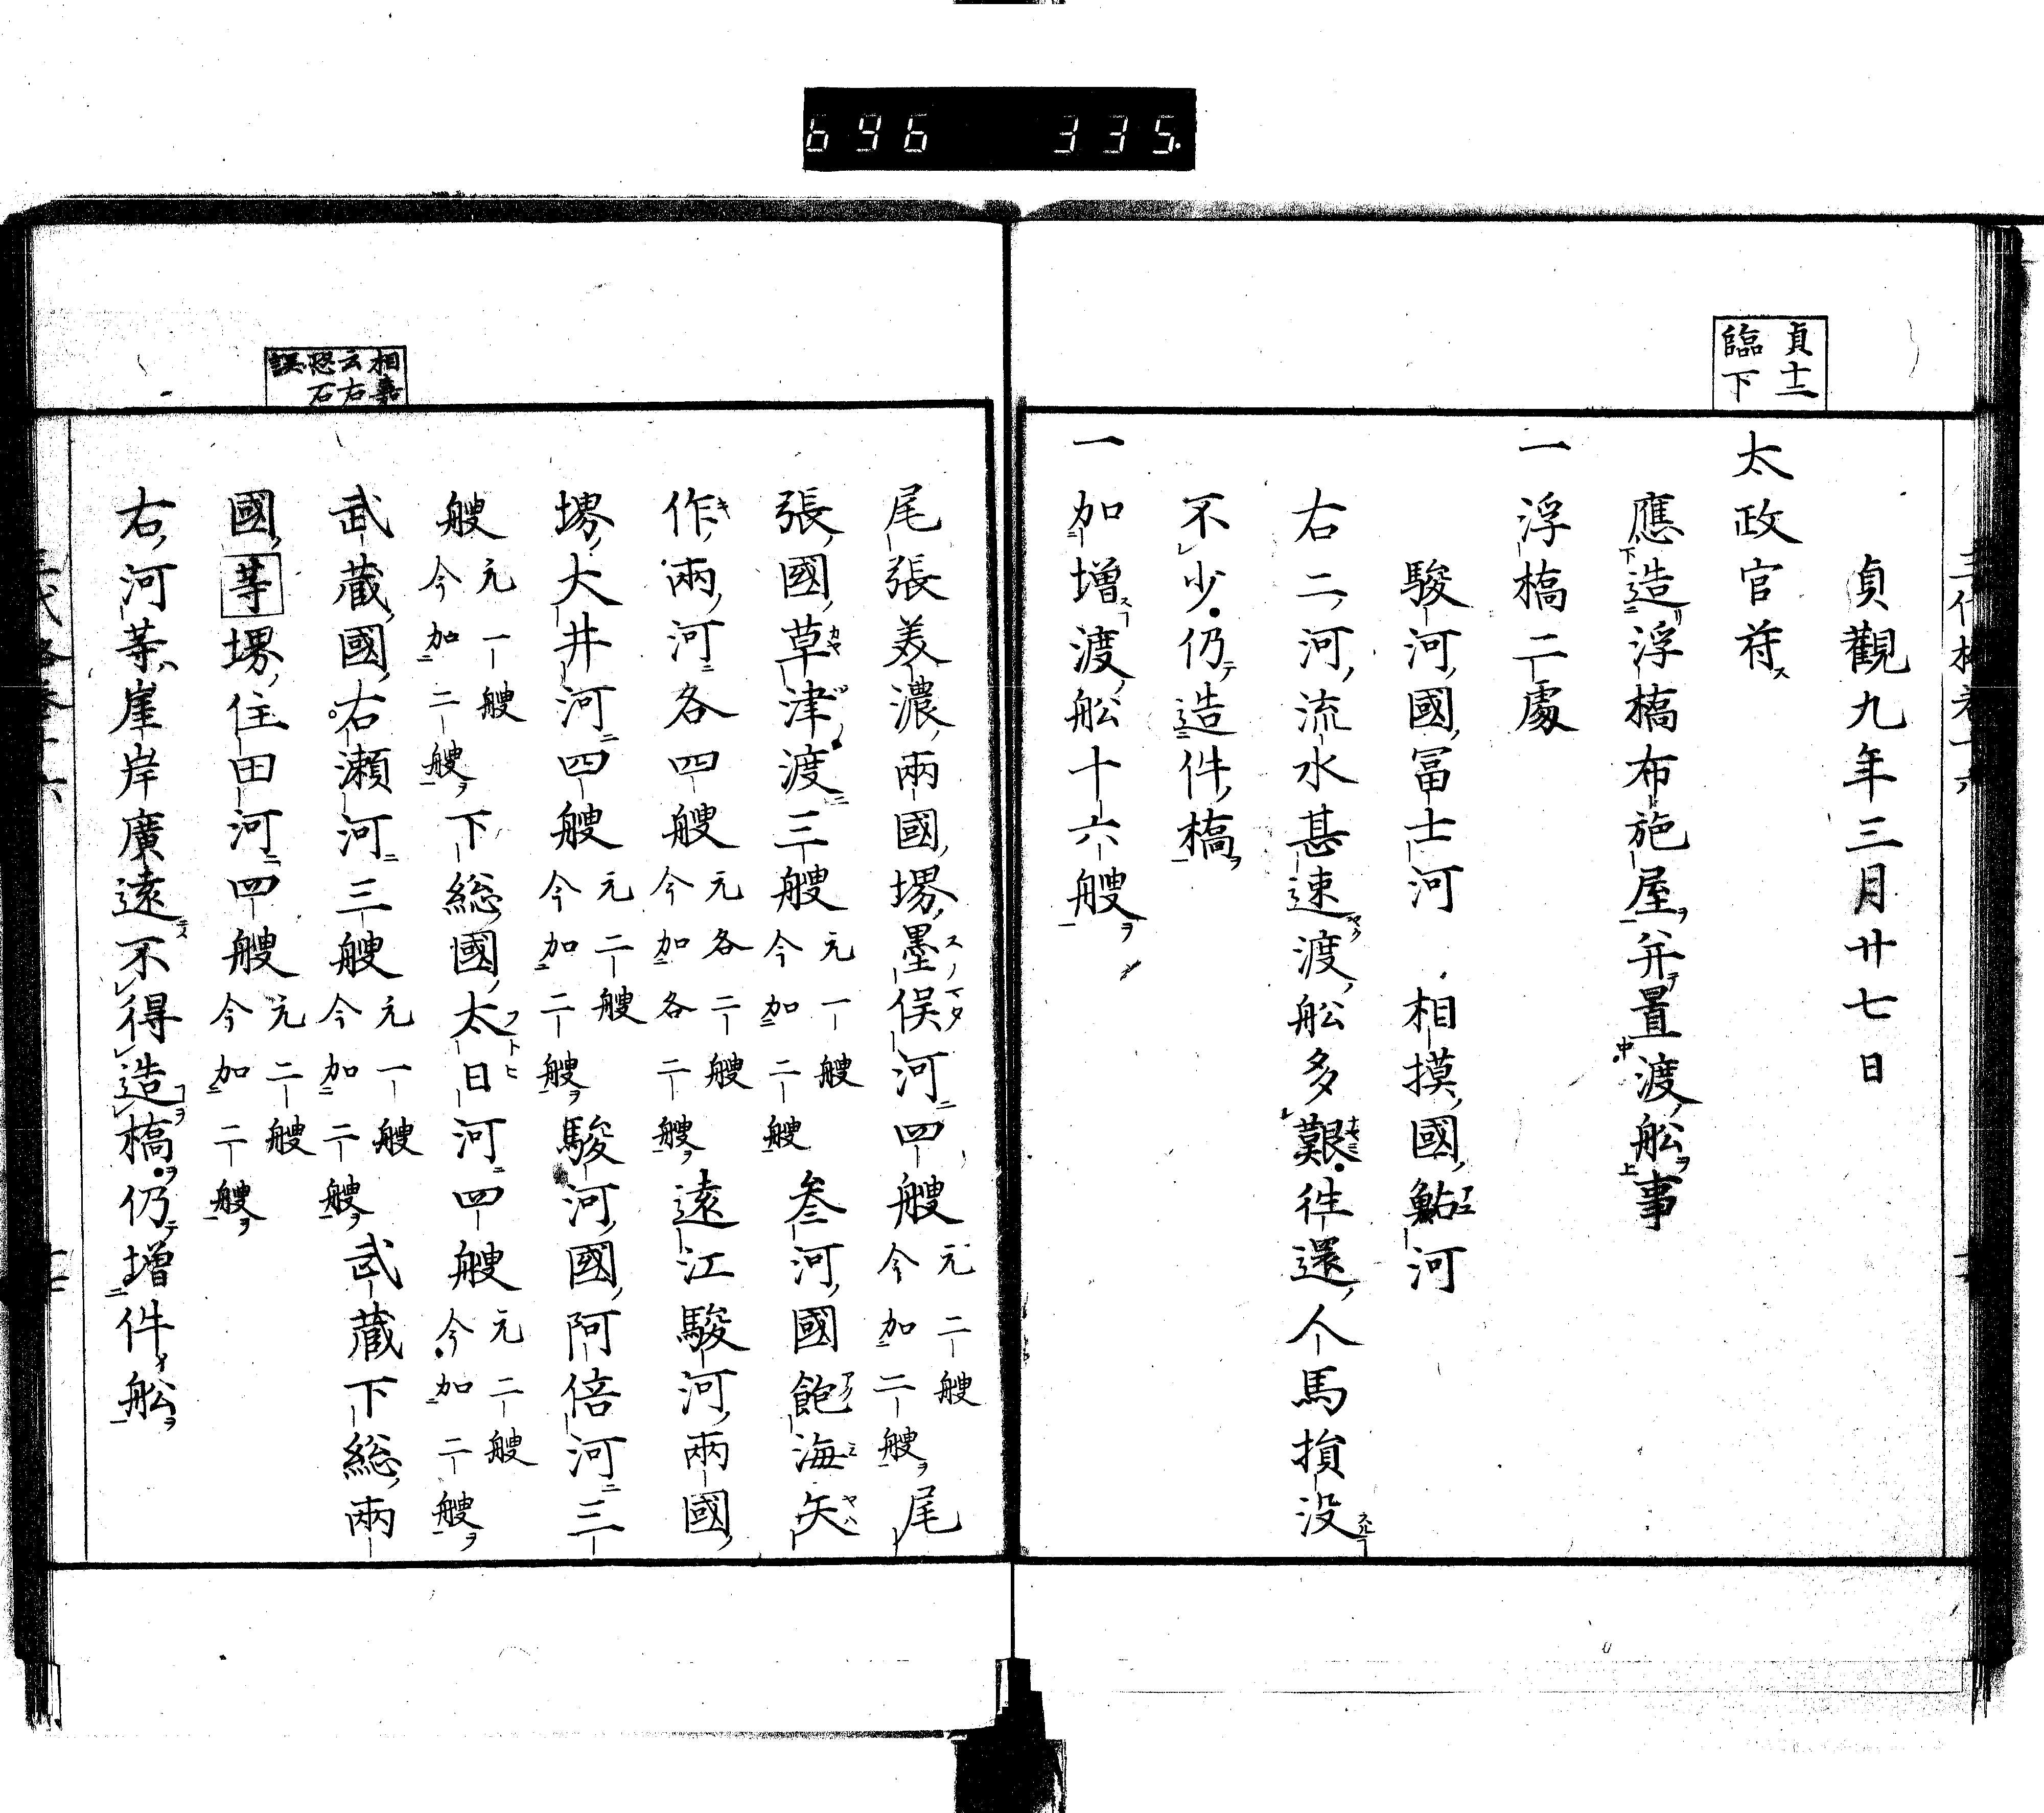 696 335
貞十二
臨下
貞觀九年三月廿七日
太政官符
應造浮橋布施屋并置渡舩事
一浮橋二處
駿河國富士河 相摸國鮎河
右二河流水甚速渡舩多艱徃還人馬損没
不少仍造件橋
一加増渡舩十六艘
相嘉
云右
恐石
誤
尾張美濃兩國堺墨俣河四艘元二艘今加二艘尾
張國草津渡三艘元一艘今加二艘叁河國飽海矢
作兩河各四艘元各二艘今加各二艘遠江駿河兩國
堺大井河四艘元二艘今加二艘駿河國阿倍河三
艘元一艘今加二艘下総國太日河四艘元二艘今加二艘
武蔵國右瀬河三艘元一艘今加二艘武蔵下総兩
國等堺住田河四艘元二艘今加二艘
右河等崖岸廣遠不得造橋仍増件舩